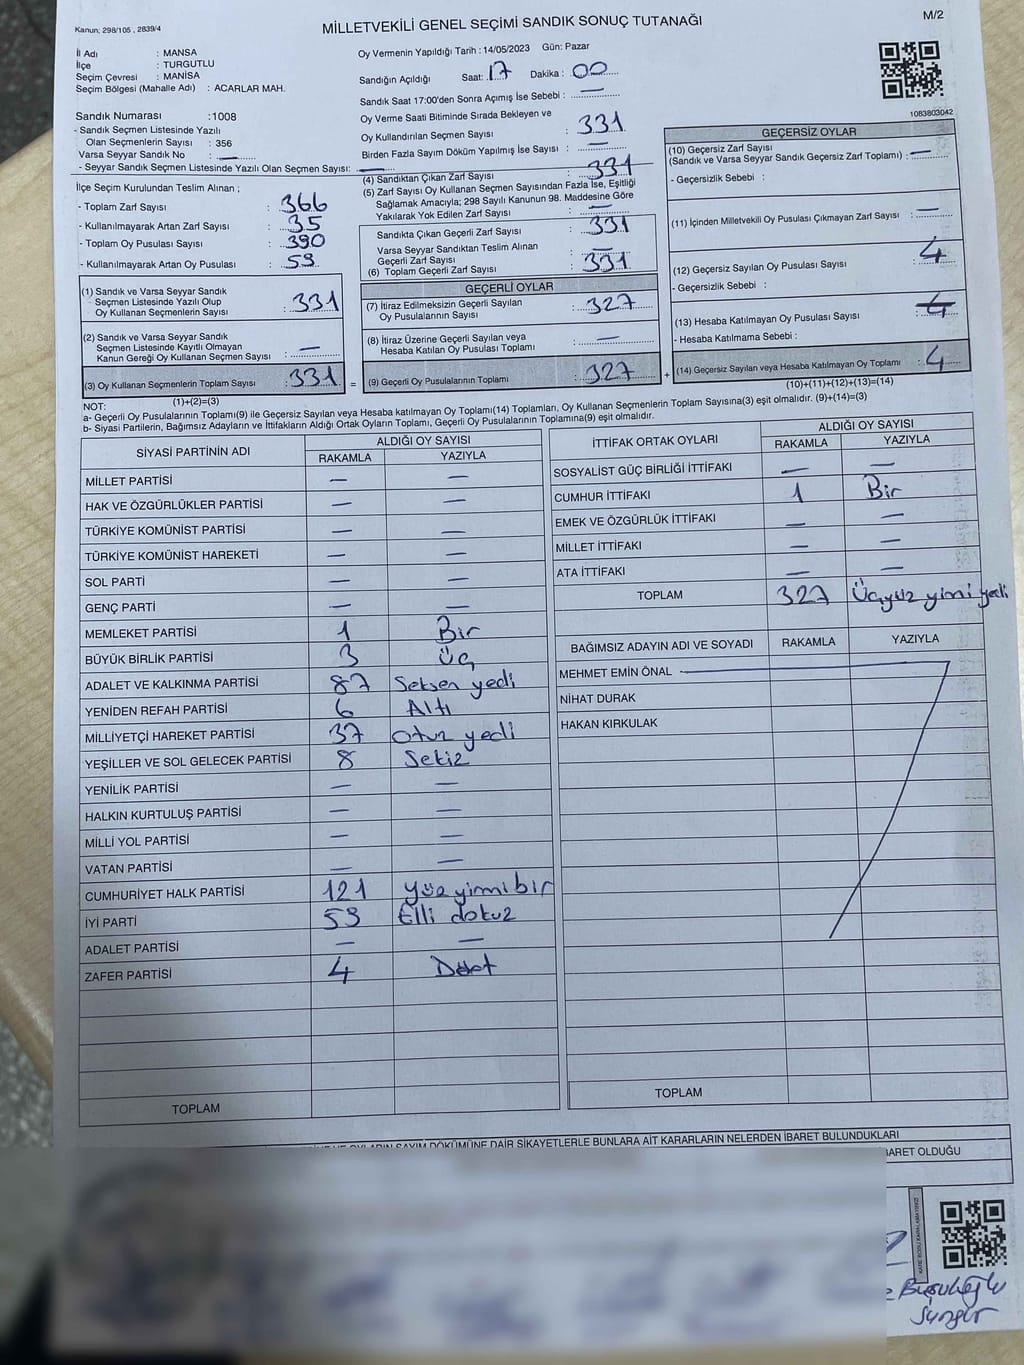 Kanun; 298/105 , 2839/4
MİLLETVEKİLİ GENEL SEÇİMİ SANDIK SONUÇ TUTANAĞI
M/2
İl Adı : MANSA
İlçe : TURGUTLU
Seçim Çevresi : MANİSA
Seçim Bölgesi (Mahalle Adı) : ACARLAR MAH.
Oy Vermenin Yapıldığı Tarih : 14/05/2023 Gün: Pazar
Sandığın Açıldığı Saat: 17 Dakika : 00
Sandık Saat 17:00'den Sonra Açımış İse Sebebi : —
1083803042
Sandık Numarası :1008
- Sandık Seçmen Listesinde Yazılı
Olan Seçmenlerin Sayısı : 356
Varsa Seyyar Sandık No : —
- Seyyar Sandık Seçmen Listesinde Yazılı Olan Seçmen Sayısı: —
Oy Verme Saati Bitiminde Sırada Bekleyen ve
Oy Kullandırılan Seçmen Sayısı : 331
Birden Fazla Sayım Döküm Yapılmış İse Sayısı : —
İlçe Seçim Kurulundan Teslim Alınan ;
- Toplam Zarf Sayısı : 366
- Kullanılmayarak Artan Zarf Sayısı : 35
- Toplam Oy Pusulası Sayısı : 390
- Kullanılmayarak Artan Oy Pusulası : 59
(1) Sandık ve Varsa Seyyar Sandık
Seçmen Listesinde Yazılı Olup
Oy Kullanan Seçmenlerin Sayısı : 331
(2) Sandık ve Varsa Seyyar Sandık
Seçmen Listesinde Kayıtlı Olmayan
Kanun Gereği Oy Kullanan Seçmen Sayısı : —
(3) Oy Kullanan Seçmenlerin Toplam Sayısı : 331 =
(1)+(2)=(3)
(4) Sandıktan Çıkan Zarf Sayısı : 331
(5) Zarf Sayısı Oy Kullanan Seçmen Sayısından Fazla İse, Eşitliği
Sağlamak Amacıyla; 298 Sayılı Kanunun 98. Maddesine Göre
Yakılarak Yok Edilen Zarf Sayısı : —
Sandıkta Çıkan Geçerli Zarf Sayısı : 331
Varsa Seyyar Sandıktan Teslim Alınan
Geçerli Zarf Sayısı : —
(6) Toplam Geçerli Zarf Sayısı : 331
GEÇERLİ OYLAR
(7) İtiraz Edilmeksizin Geçerli Sayılan
Oy Pusulalarının Sayısı : 327
(8) İtiraz Üzerine Geçerli Sayılan veya
Hesaba Katılan Oy Pusulası Toplamı : —
(9) Geçerli Oy Pusulalarının Toplamı : 327 +
GEÇERSİZ OYLAR
(10) Geçersiz Zarf Sayısı
(Sandık ve Varsa Seyyar Sandık Geçersiz Zarf Toplamı) : —
- Geçersizlik Sebebi :
(11) İçinden Milletvekili Oy Pusulası Çıkmayan Zarf Sayısı : —
(12) Geçersiz Sayılan Oy Pusulası Sayısı : 4
- Geçersizlik Sebebi :
(13) Hesaba Katılmayan Oy Pusulası Sayısı : 4
- Hesaba Katılmama Sebebi :
(14) Geçersiz Sayılan veya Hesaba Katılmayan Oy Toplamı : 4
(10)+(11)+(12)+(13)=(14)
NOT:
a- Geçerli Oy Pusulalarının Toplamı(9) ile Geçersiz Sayılan veya Hesaba katılmayan Oy Toplamı(14) Toplamları, Oy Kullanan Seçmenlerin Toplam Sayısına(3) eşit olmalıdır. (9)+(14)=(3)
b- Siyasi Partilerin, Bağımsız Adayların ve İttifakların Aldığı Ortak Oyların Toplamı, Geçerli Oy Pusulalarının Toplamına(9) eşit olmalıdır.
SİYASİ PARTİNİN ADI ALDIĞI OY SAYISI
RAKAMLA YAZIYLA
MİLLET PARTİSİ — —
HAK VE ÖZGÜRLÜKLER PARTİSİ — —
TÜRKİYE KOMÜNİST PARTİSİ — —
TÜRKİYE KOMÜNİST HAREKETİ — —
SOL PARTİ — —
GENÇ PARTİ — —
MEMLEKET PARTİSİ 1 Bir
BÜYÜK BİRLİK PARTİSİ 3 Üç
ADALET VE KALKINMA PARTİSİ 87 Seksen yedi
YENİDEN REFAH PARTİSİ 6 Altı
MİLLİYETÇİ HAREKET PARTİSİ 37 Otuz yedi
YEŞİLLER VE SOL GELECEK PARTİSİ 8 Sekiz
YENİLİK PARTİSİ — —
HALKIN KURTULUŞ PARTİSİ — —
MİLLİ YOL PARTİSİ — —
VATAN PARTİSİ — —
CUMHURİYET HALK PARTİSİ 121 Yüz yirmi bir
İYİ PARTİ 59 Elli dokuz
ADALET PARTİSİ — —
ZAFER PARTİSİ 4 Dört
TOPLAM
İTTİFAK ORTAK OYLARI ALDIĞI OY SAYISI
RAKAMLA YAZIYLA
SOSYALİST GÜÇ BİRLİĞİ İTTİFAKI — —
CUMHUR İTTİFAKI 1 Bir
EMEK VE ÖZGÜRLÜK İTTİFAKI — —
MİLLET İTTİFAKI — —
ATA İTTİFAKI — —
TOPLAM 327 Üçyüz yimi yedi
BAĞIMSIZ ADAYIN ADI VE SOYADI RAKAMLA YAZIYLA
MEHMET EMİN ÖNAL
NİHAT DURAK
HAKAN KIRKULAK
TOPLAM
OYLARIN SAYIM DÖKÜMÜNE DAİR ŞİKAYETLERLE BUNLARA AİT KARARLARIN NELERDEN İBARET BULUNDUKLARI
BARET OLDUĞU